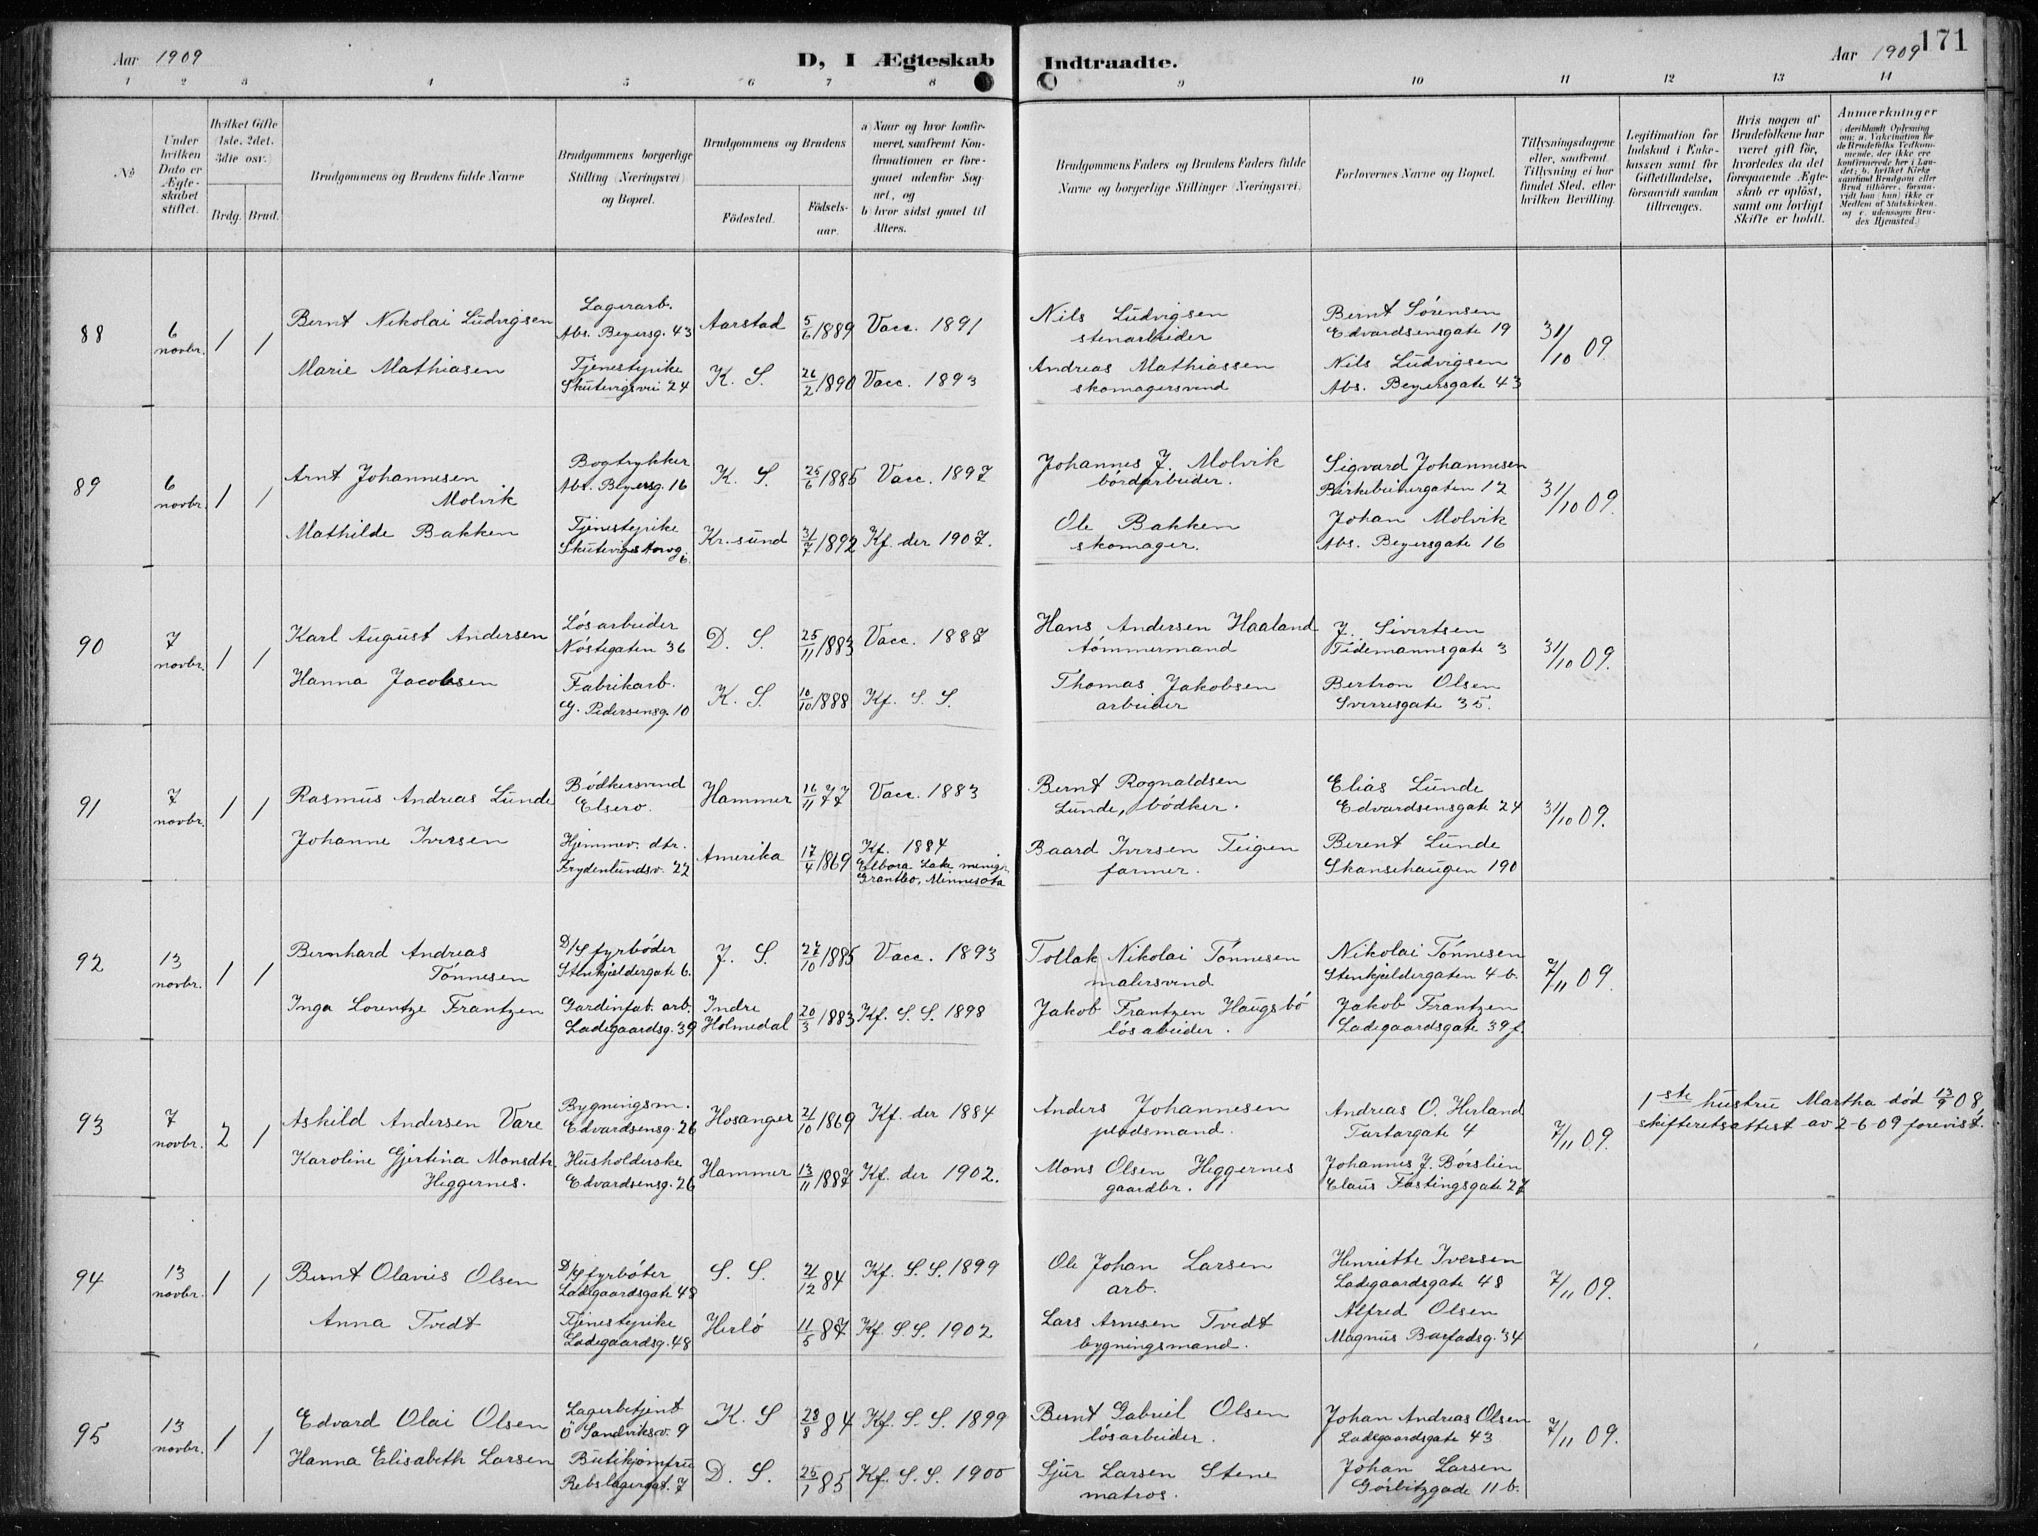 171
Aar 1909
D, I Ægteskab
Indtraadte.
Aar 1909
1 2 3 4 5 6 7 8 9 10 11 12 13 14
No
Under
hvilken
Dato er
Ægte-
skabet
stiftet.
Hvilket Gifte
(1ste, 2det,
3die osv.)
Brdg. Brud.
Brudgommens og Brudens fulde Navne
Brudgommens borgerlige
Stilling (Næringsvei)
og Bopæl.
Brudgommens og Brudens
Fødested.
Fødsels-
aar.
a) Naar og hvor konfir-
meret, saafremt Kon-
firmationen er fore-
gaaet udenfor Sog-
net, og
b) hvor sidst gaaet til
Alters.
Brudgommens Faders og Brudens Faders fulde
Navne og borgerlige Stillinger (Næringsvei)
Forlovernes Navne og Bopæl.
Tillysningsdagene
eller, saafremt
Tillysning ei har
fundet Sted, efter
hvilken Bevilling.
Legitimation for
Indskud i Enke-
kassen samt for
Giftetilladelse,
forsaavidt saadan
tiltrænges.
Hvis nogen af
Brudefolkene har
været gift før,
hvorledes da det
foregaaende Ægte-
skab er opløst,
samt om lovligt
Skifte er holdt.
Anmerkninger
(deriblandt Oplysning
om: a. Vakcination for
de Brudefolks Vedkom-
mende, der ikke ere
konfirmerede her i Lan-
det; b. hvilket Kirke-
samfund Brudgom eller
Brud tilhører, forsaa-
vidt han (hun) ikke er
Medlem af Statskirken,
og c. udensogns Bru-
des Hjemsted.)
88
6
novbr.
1 1
Bernt Nikolai Ludvigsen
Lagerarb.
Abs. Beyersg. 43
Aarstad
5/6 1889
Vacc. 1891
Nils Ludvigsen
stenarbeider
Bernt Sørensen
Edvardsensgate 19
31/10 09
Marie Mathiasen
Tjenestepike
Skutevigsvei 24
K. S.
26/2 1890
Vacc. 1893
Andreas Mathiassen
skomagersvend
Nils Ludvigsen
Abs. Beyersgate 43
89
6
novbr.
1 1
Arnt Johannesen
Molvik
Bogtrykker
Abs. Beyersg. 16
K. S.
25/6 1885
Vacc. 1897
Johannes J. Molvik
bórdarbeider.
Sigvard Johannesen
Birkebeinergaten 12
31/10 09.
Mathilde Bakken
Tjenestepike
Skutevigstorvg. 6
Kr. sund
31/7 1892
Kf. der 1907.
Ole Bakken
skomager.
Johan Molvik
Abs. Beyersgate 16
90
7
novbr.
1 1
Karl August Andersen
Lósarbeider
Nóstegaten 36
D. S.
25/11 1883
Vacc. 1887
Hans Andersen Haaland
tómmermand
J. Sivertsen
Tidemannsgate 3
31/10 09.
Hanna Jacobsen
Fabrikarb.
G. Pedersensg. 10
K. S.
10/10 1888
Kf. S. S.
Thomas Jakobsen
arbeider
Bertron Olsen
Sverresgate 35.
91
7
novbr.
1 1
Rasmus Andreas Lunde
Bódkersvend
Elsero.
Hammer
16/11 77
Vacc. 1883
Bernt Rognaldsen
Lunde, bódker.
Elias Lunde
Edvardsensgate 24
31/10 09.
Johanne Iversen
Hjemmev. dtr.
Frydenlundsv. 22
Amerika
17/4 1869
Kf. 1884
Elbora Lake menigh.
Grantbo, Minnesota
Baard Iversen Teigen
farmer.
Berent Lunde
Skansehaugen 190
92
13
novbr.
1 1
Bernhard Andreas
Tónnesen
D/S fyrbóder
Stenkjeldergate 6.
J. S.
27/10 1885
Vacc. 1893
Tollak Nikolai Tónnesen
malersvend
Nikolai Tónnesen
Stenkjeldergaten 4 b.
7/11 09.
Inga Lorentze Frantzen
Gardinfab. arb.
Ladegaardsg. 39
Indre
Holmedal
20/3 1883
Kf. S. S. 1898
Jakob Frantzen Haugsbó
lósabeider.
Jakob Frantzen
Ladegaardsgate 39 f.
93
7
novbr.
2 1
Askild Andersen Vare
Bygningsm.
Edvardsensg. 26
Hosanger
21/10 1869
Kf. der 1884
Anders Johannesen
pladsmand.
Andreas O. Herland
Tartargate 4
7/11 09.
1ste hustru Martha død 13/9 08
skifteretsattest av 2-6-09 forevist.
Karoline Gjertina Monsdtr.
Heggernes.
Husholderske
Edvardsensg. 26
Hammer
13/11 1887
Kf. der 1902.
Mons Olsen Heggernes
gaardbr.
Johannes J. Bórslien
Claus Fastingsgate 27
94
13
novbr.
1 1
Bernt Olavus Olsen
D/S fyrbóter
Ladegaardsgate 48
S. S.
21/12 84
Kf. S. S. 1899
Ole Johan Larsen
arb.
Henriette Iversen
Ladegaardsgate 48
7/11 09.
Anna Tvedt
Tjenestepike
Ladegaardsg. 48
Herló
11/5 87
Kf. S. S. 1902
Lars Arnesen Tvedt
bygningsmand.
Alfred Olsen
Magnus Barfodsg. 34
95
13
novbr.
1 1
Edvard Olai Olsen
Lagerbetjent
Ö Sandviksv. 9
K. S
28/8 84
Kf. S. S. 1899
Bernt Gabriel Olsen
lósarbeider.
Johan Andreas Olsen
Ladegaardsgate 43
7/11 09.
Hanna Elisabeth Larsen
Butikjomfru
Rebslagergat. 7
D. S.
25/1 85
Kf. S. S. 1900
Sjur Larsen Stene
matros.
Johan Larsen
Górbitzgade 11 b.